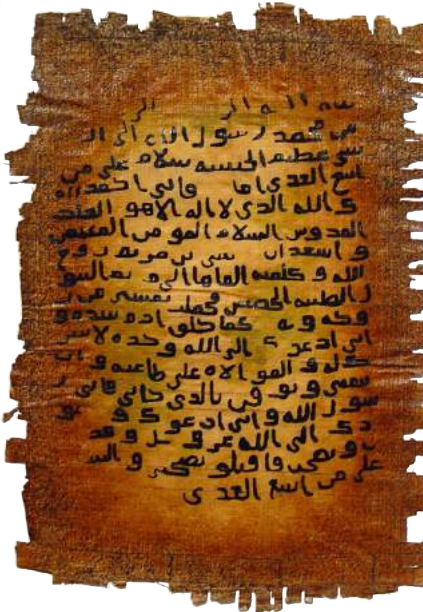 بسم الله الر الر
من محمد رسول الله الى الـ
شى عظيم الحبشه سلام على من
اتبع الهدى اما فانى احمد ا
ك الله الذى لا اله الا هو الملك
القدوس السلام المومن المهيمن
و اشهد ان عيسى بن مريم روح
الله و كلمته القاها الى مر يم البتو
ل الطيبه الحصينه فحملت بعيسى من ر
وحه و نفـ ه كما خلق ادم بيده و
انى ادعو ك الى الله وحده لا شر
ك له و الموالاه على طاعته و ان
تتبعنى و تو قن بالذى جانى فانى ر
سول الله و انى ادعو ك و جنو
دك الى الله عز و جل و قد
ت و نصحت فاقبلو نصحى و السـ
على من اتبع الهد ى